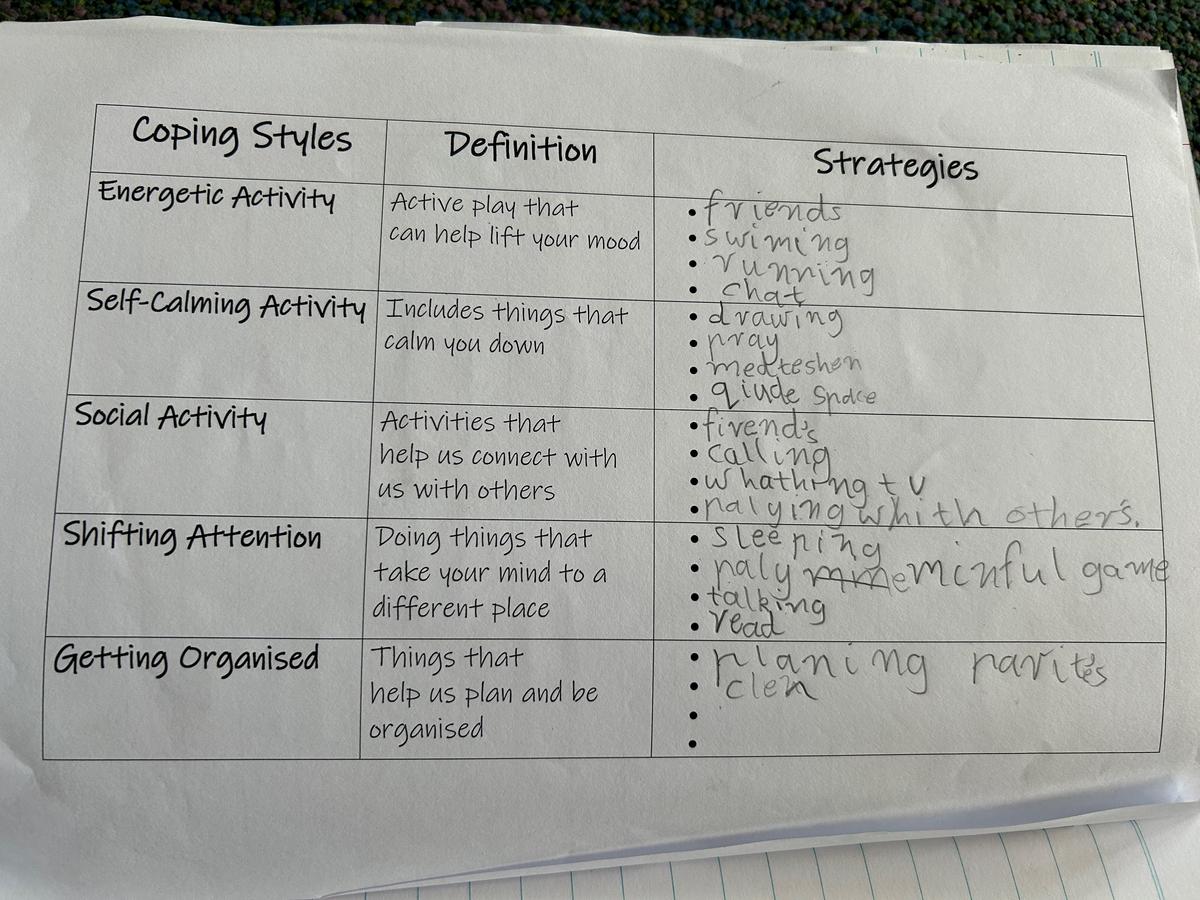 Coping Styles
Definition
Strategies
Energetic Activity
Active play that
can help lift your mood
• friends
• swiming
• running
• chat
Self-Calming Activity
Includes things that
calm you down
• drawing
• pray
• medteshen
• qiude Space
Social Activity
Activities that
help us connect with
us with others
• fivend's
• calling
• whathing tv
• palying whith others.
Shifting Attention
Doing things that
take your mind to a
different place
• sleeping
• paly minful game
• talking
• read
Getting Organised
Things that
help us plan and be
organised
• planing parites
• clen
•
•